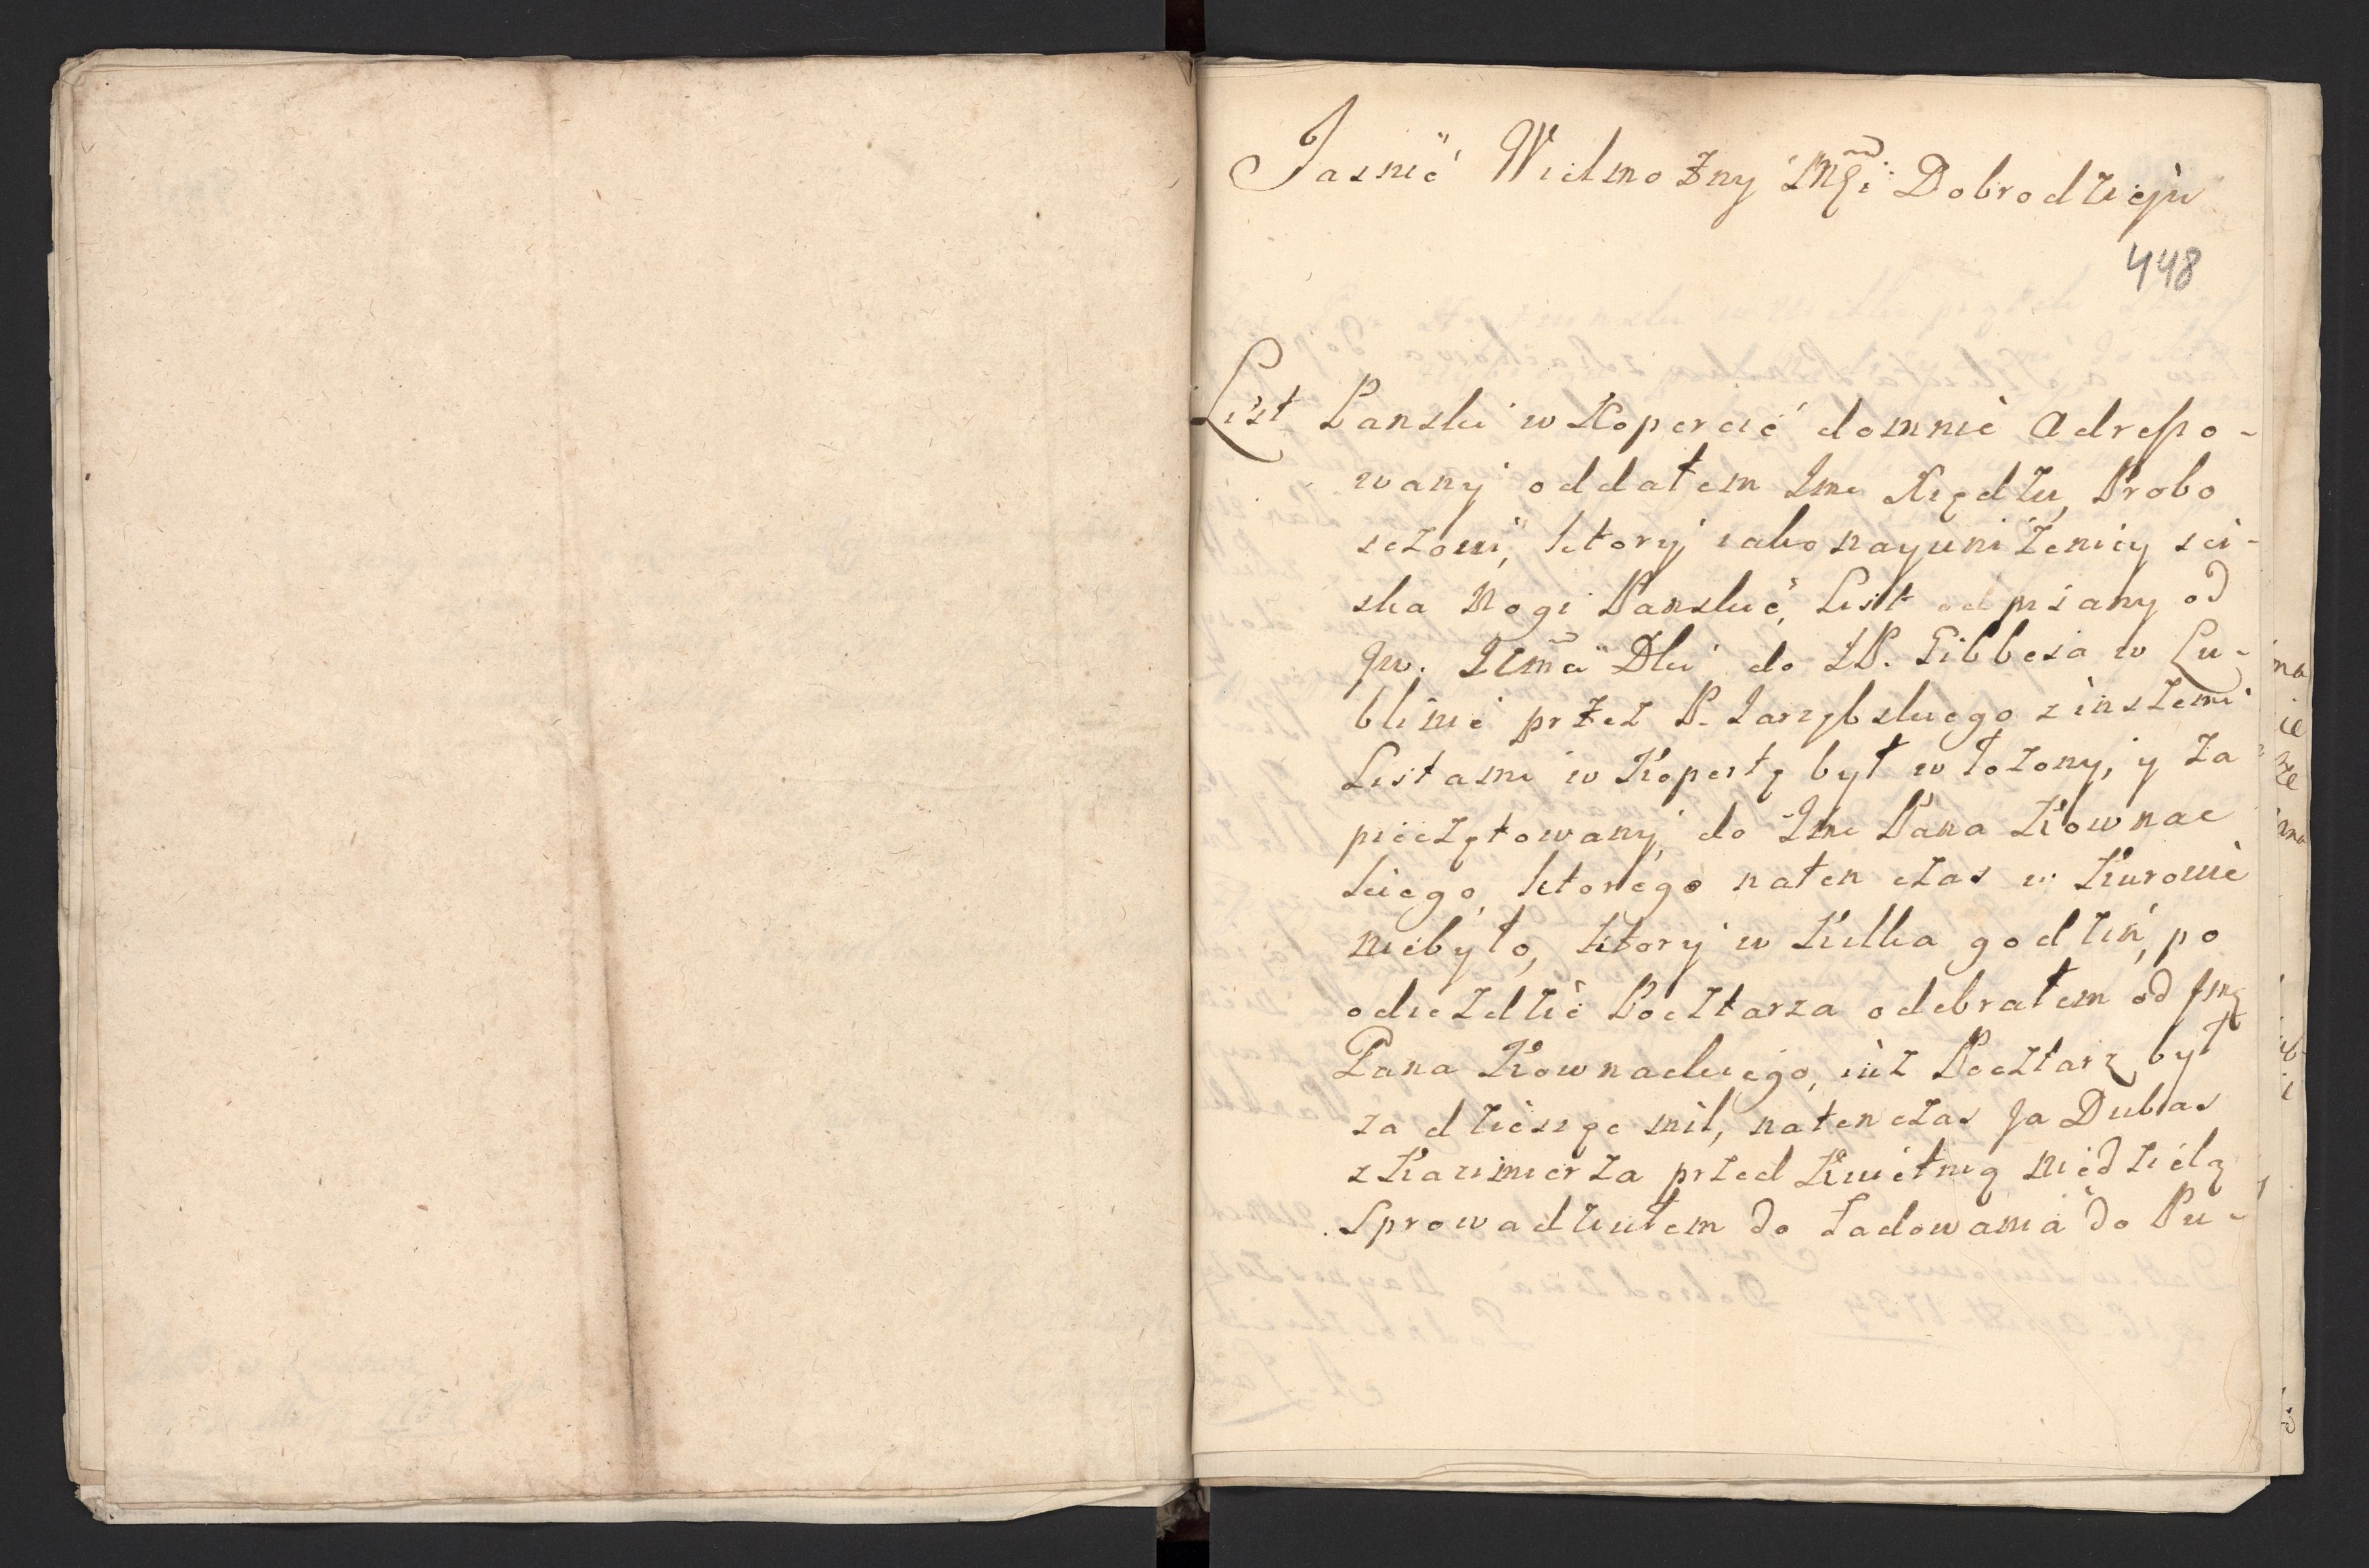 Jasnie Wielmozny Mći Dobrodzieju
448
List Panski w Kopercie domnie Adresso-
wany oddałem Jme Xiędzu Probo
sczowi, ktory iako nayunizeniey sci-
ska Nogi Panskie, List odpisany od
Jw. Dki do JP. Gibbesa w Lu-
blinie przez P. Jarzębskiego z inszemi
Listami w Kopertę był włozony, y za
pieczętowany, do Jme Pana Kownac
kiego, ktorego naten czas w Kurowie
niebyło, ktory w Kilka godzin, po
odiezdzie Pocztarza odebrałem od Jmę
Pana Kownackiego, iuz Pocztarz był
za dziesięc mil, naten czas Ja Dubas
z Kazimierza przed Kwietnią Niedzielą
Sprowadziłem do Ładowania do Pu-